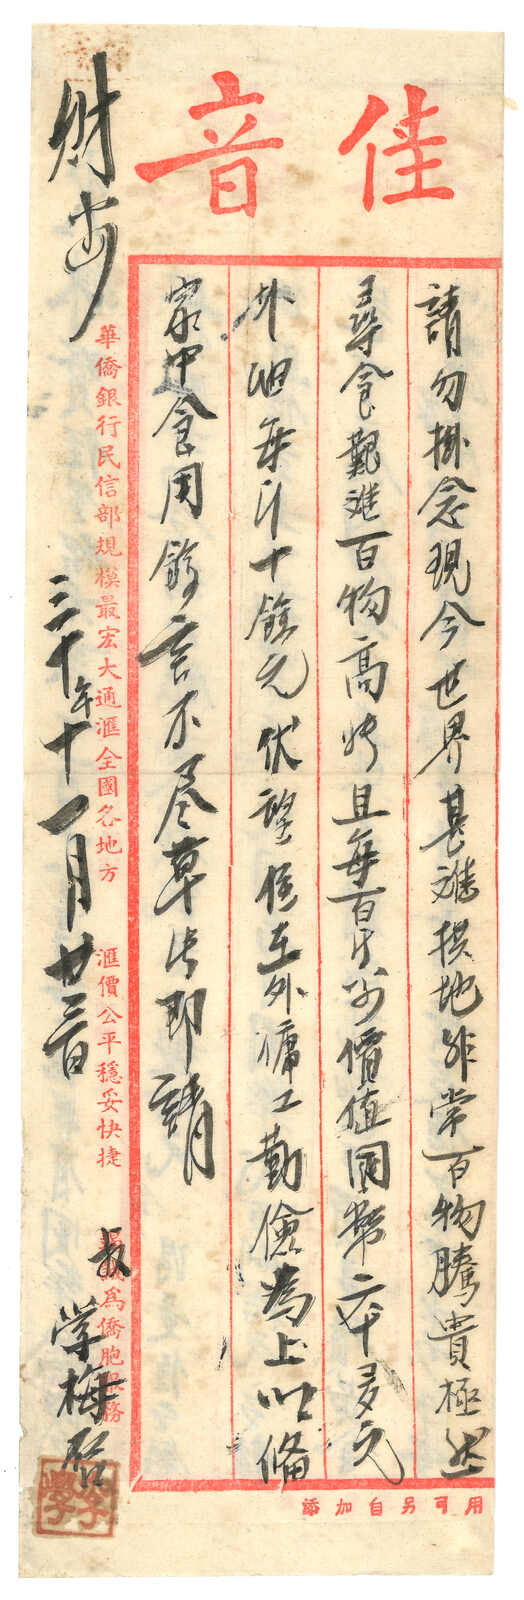 佳音
請勿掛念現今世界甚難損地非常百物騰貴極然
尋食艱難百物高 且每百斤 價值國幣六十多元
外油每斤十餘元伏望侄在外傭工勤儉為上以備
家中食用餘言不尽草此即請
財安
華僑銀行民信部規模最宏大通滙全國各地方 滙價公平穩妥快捷 竭誠為僑胞服務
三十年十一月廿三日
叔 学梅啓
添加自另可用